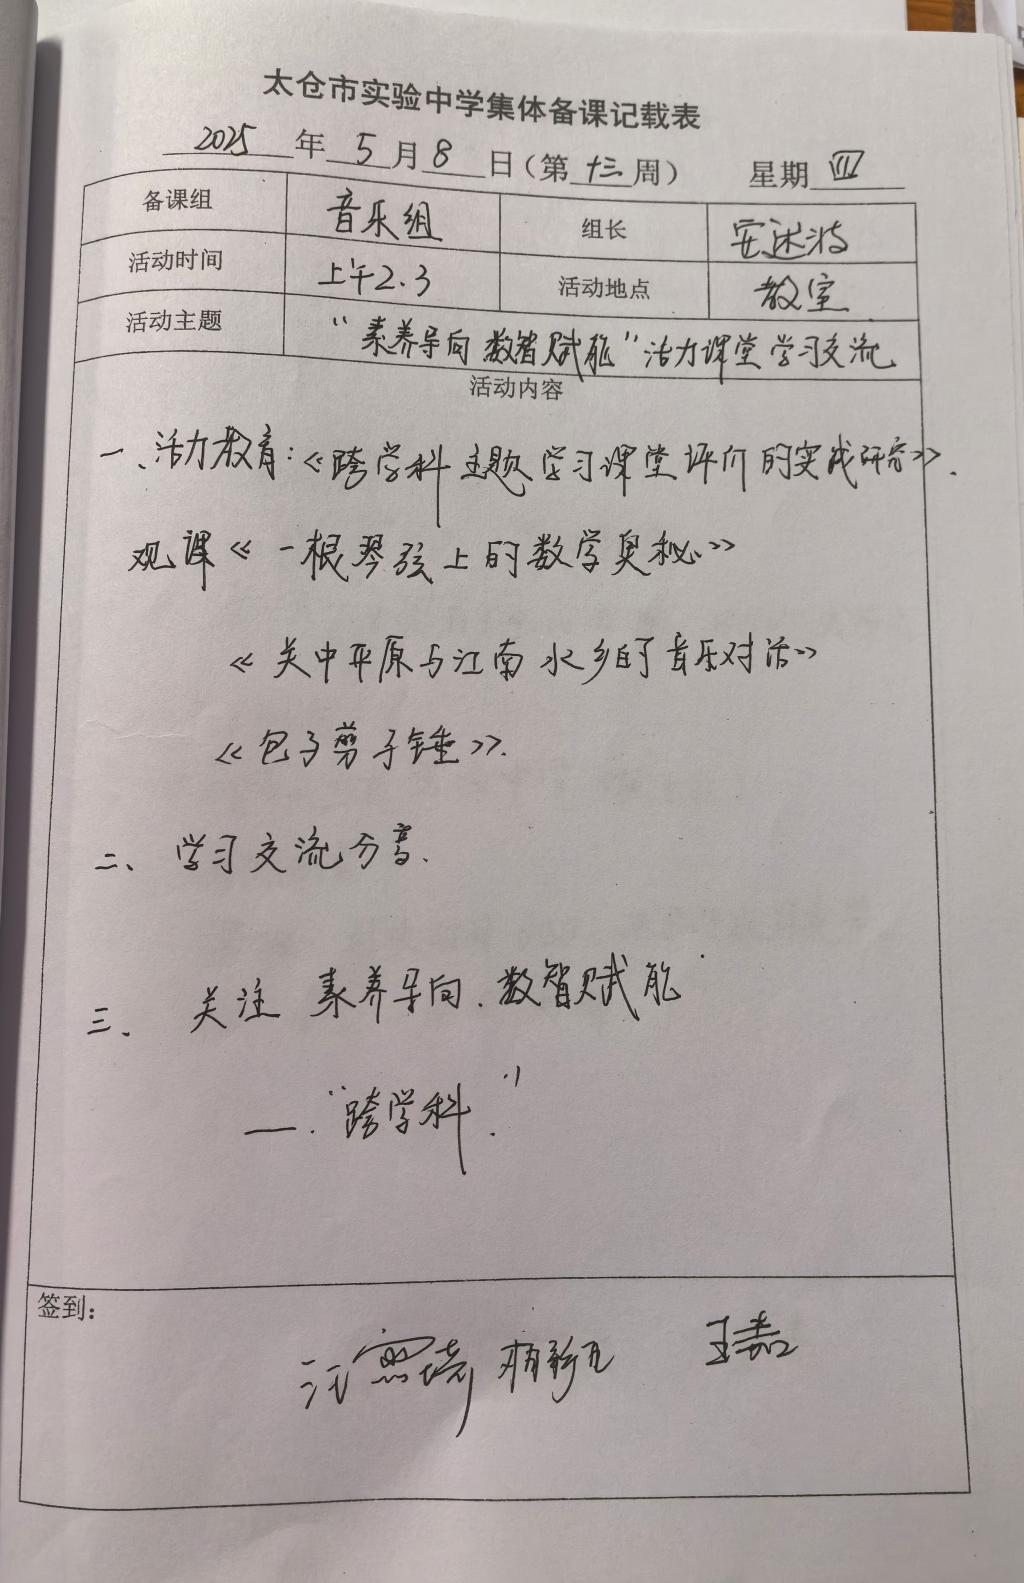 太仓市实验中学集体备课记载表
2025年5月8日（第十三周） 星期四
备课组 音乐组 组长 安达波
活动时间 上午2.3 活动地点 教室
活动主题 “素养导向 数智赋能”活力课堂学习交流
活动内容
一、活力教育：《跨学科主题学习课堂评价的实践研究》.
观课《一根琴弦上的数学奥秘》
《关中平原与江南水乡的音乐对话》
《包子剪子锤》.
二、学习交流分享.
三. 关注 素养导向.数智赋能
—.“跨学科.”
签到：
王嘉